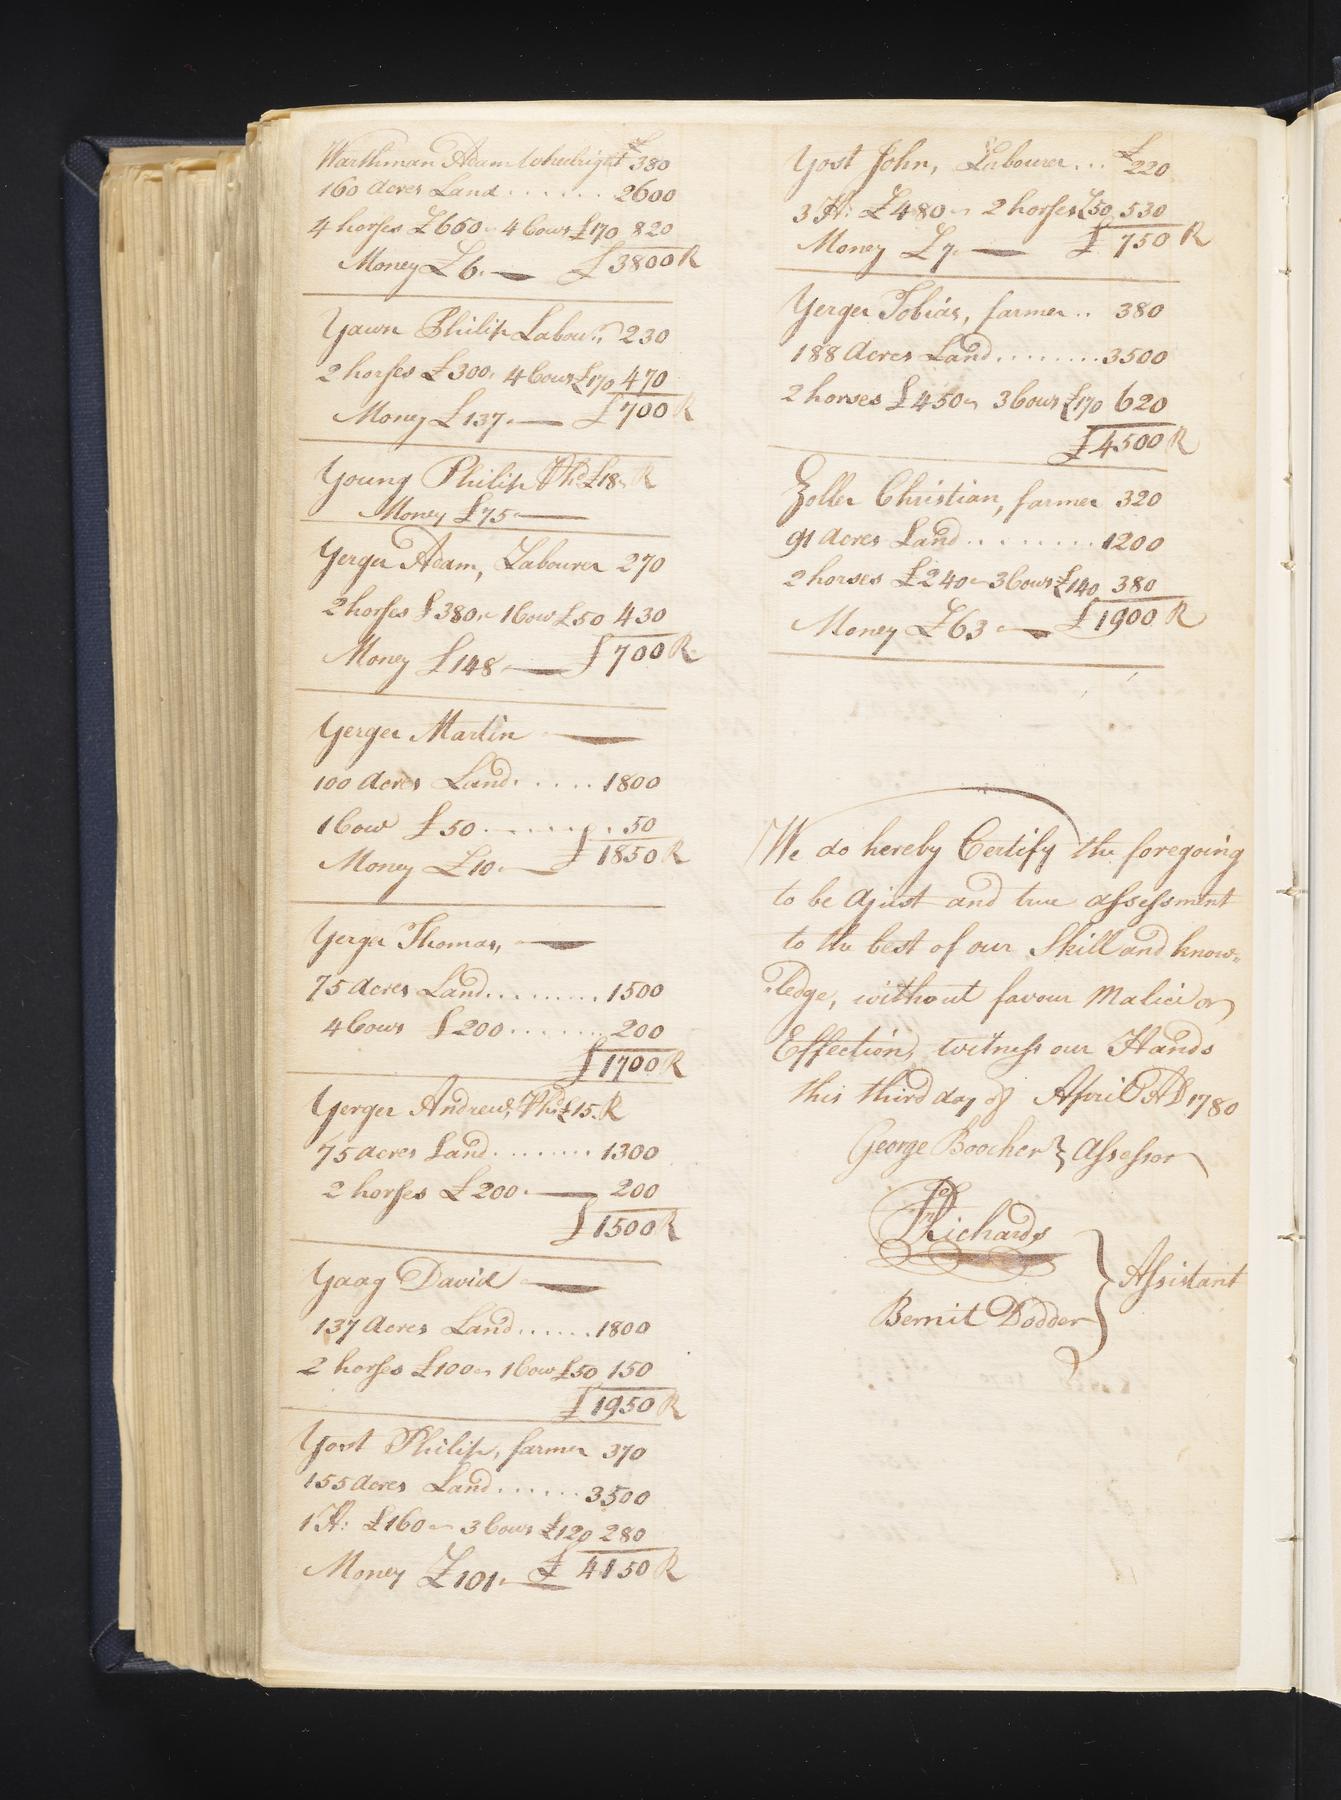 Warthman Adam Wheelright £ 380
160 Acres Land ...... 2600
4 horses £650 " 4 Cows £170 820
Money £6. — £3800 R
Yawn Philip Labour.r 230
2 horses £300. 4 Cows £170 470
Money £137. — £700 R
Young Philip Phd £18. R
Money £75 —
Yerger Adam, Labourer 270
2 horses £380. " 1 Cow £50 430
Money £148 — £700 R
Yerger Martin —
100 Acres Land ...... 1800
1 Cow £50 ........ 50
Money £10. — £1850 R
Yerger Thomas, —
75 Acres Land ......... 1500
4 Cows £200 ........ 200
£1700 R
Yerger Andrew, Phd £15. R
75 acres Land ......... 1300
2 horses £200. — 200
£1500 R
Yaag David —
137 Acres Land ....... 1800
2 horses £100 " 1 Cow £50 150
£1950 R
Yost Philip, farmer 370
155 Acres Land ...... 3500
1 H: £160 " 3 Cows £120 280
Money £101. — £ 4150 R
Yost John, Labourer ... £220
3 H: £480 " 2 horses £50 530
Money £7. — £ 750 R
Yerger Tobias, farmer .. 380
188 Acres Land ........ 3500
2 horses £450 " 3 Cows £170 620
£4500 R
Zoller Christian, farmer 320
91 Acres Land ........ 1200
2 horses £240 " 3 Cows £140 380
Money £63 — £1900 R
We do hereby Certify the foregoing
to be a just and true assessment
to the best of our Skill and know=
=ledge, without favour Malice or
Effection, witness our Hands
this third day of April AD 1780
George Boocher } Assessor
Richards
Bernit Dodder } Assistant